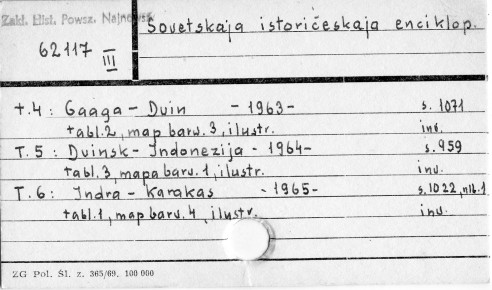 Zakł. Hist. Powsz. Najnowsz.
62117
III
Sovetskaja istoričeskaja enciklop.
T.4: Gaaga - Dvin - 1963 - s. 1071
tabl.2, map barw. 3, ilustr. inv.
T.5: Dvinsk - Indonezija - 1964 - s. 959
tabl.3, mapa barw. 1, ilustr. inv.
T.6: Indra - Karakas - 1965 - s. 1022, nlb.1
tabl.1, map barw. 4, ilustr. inv.
ZG Pol. Śl. z. 365/69. 100 000